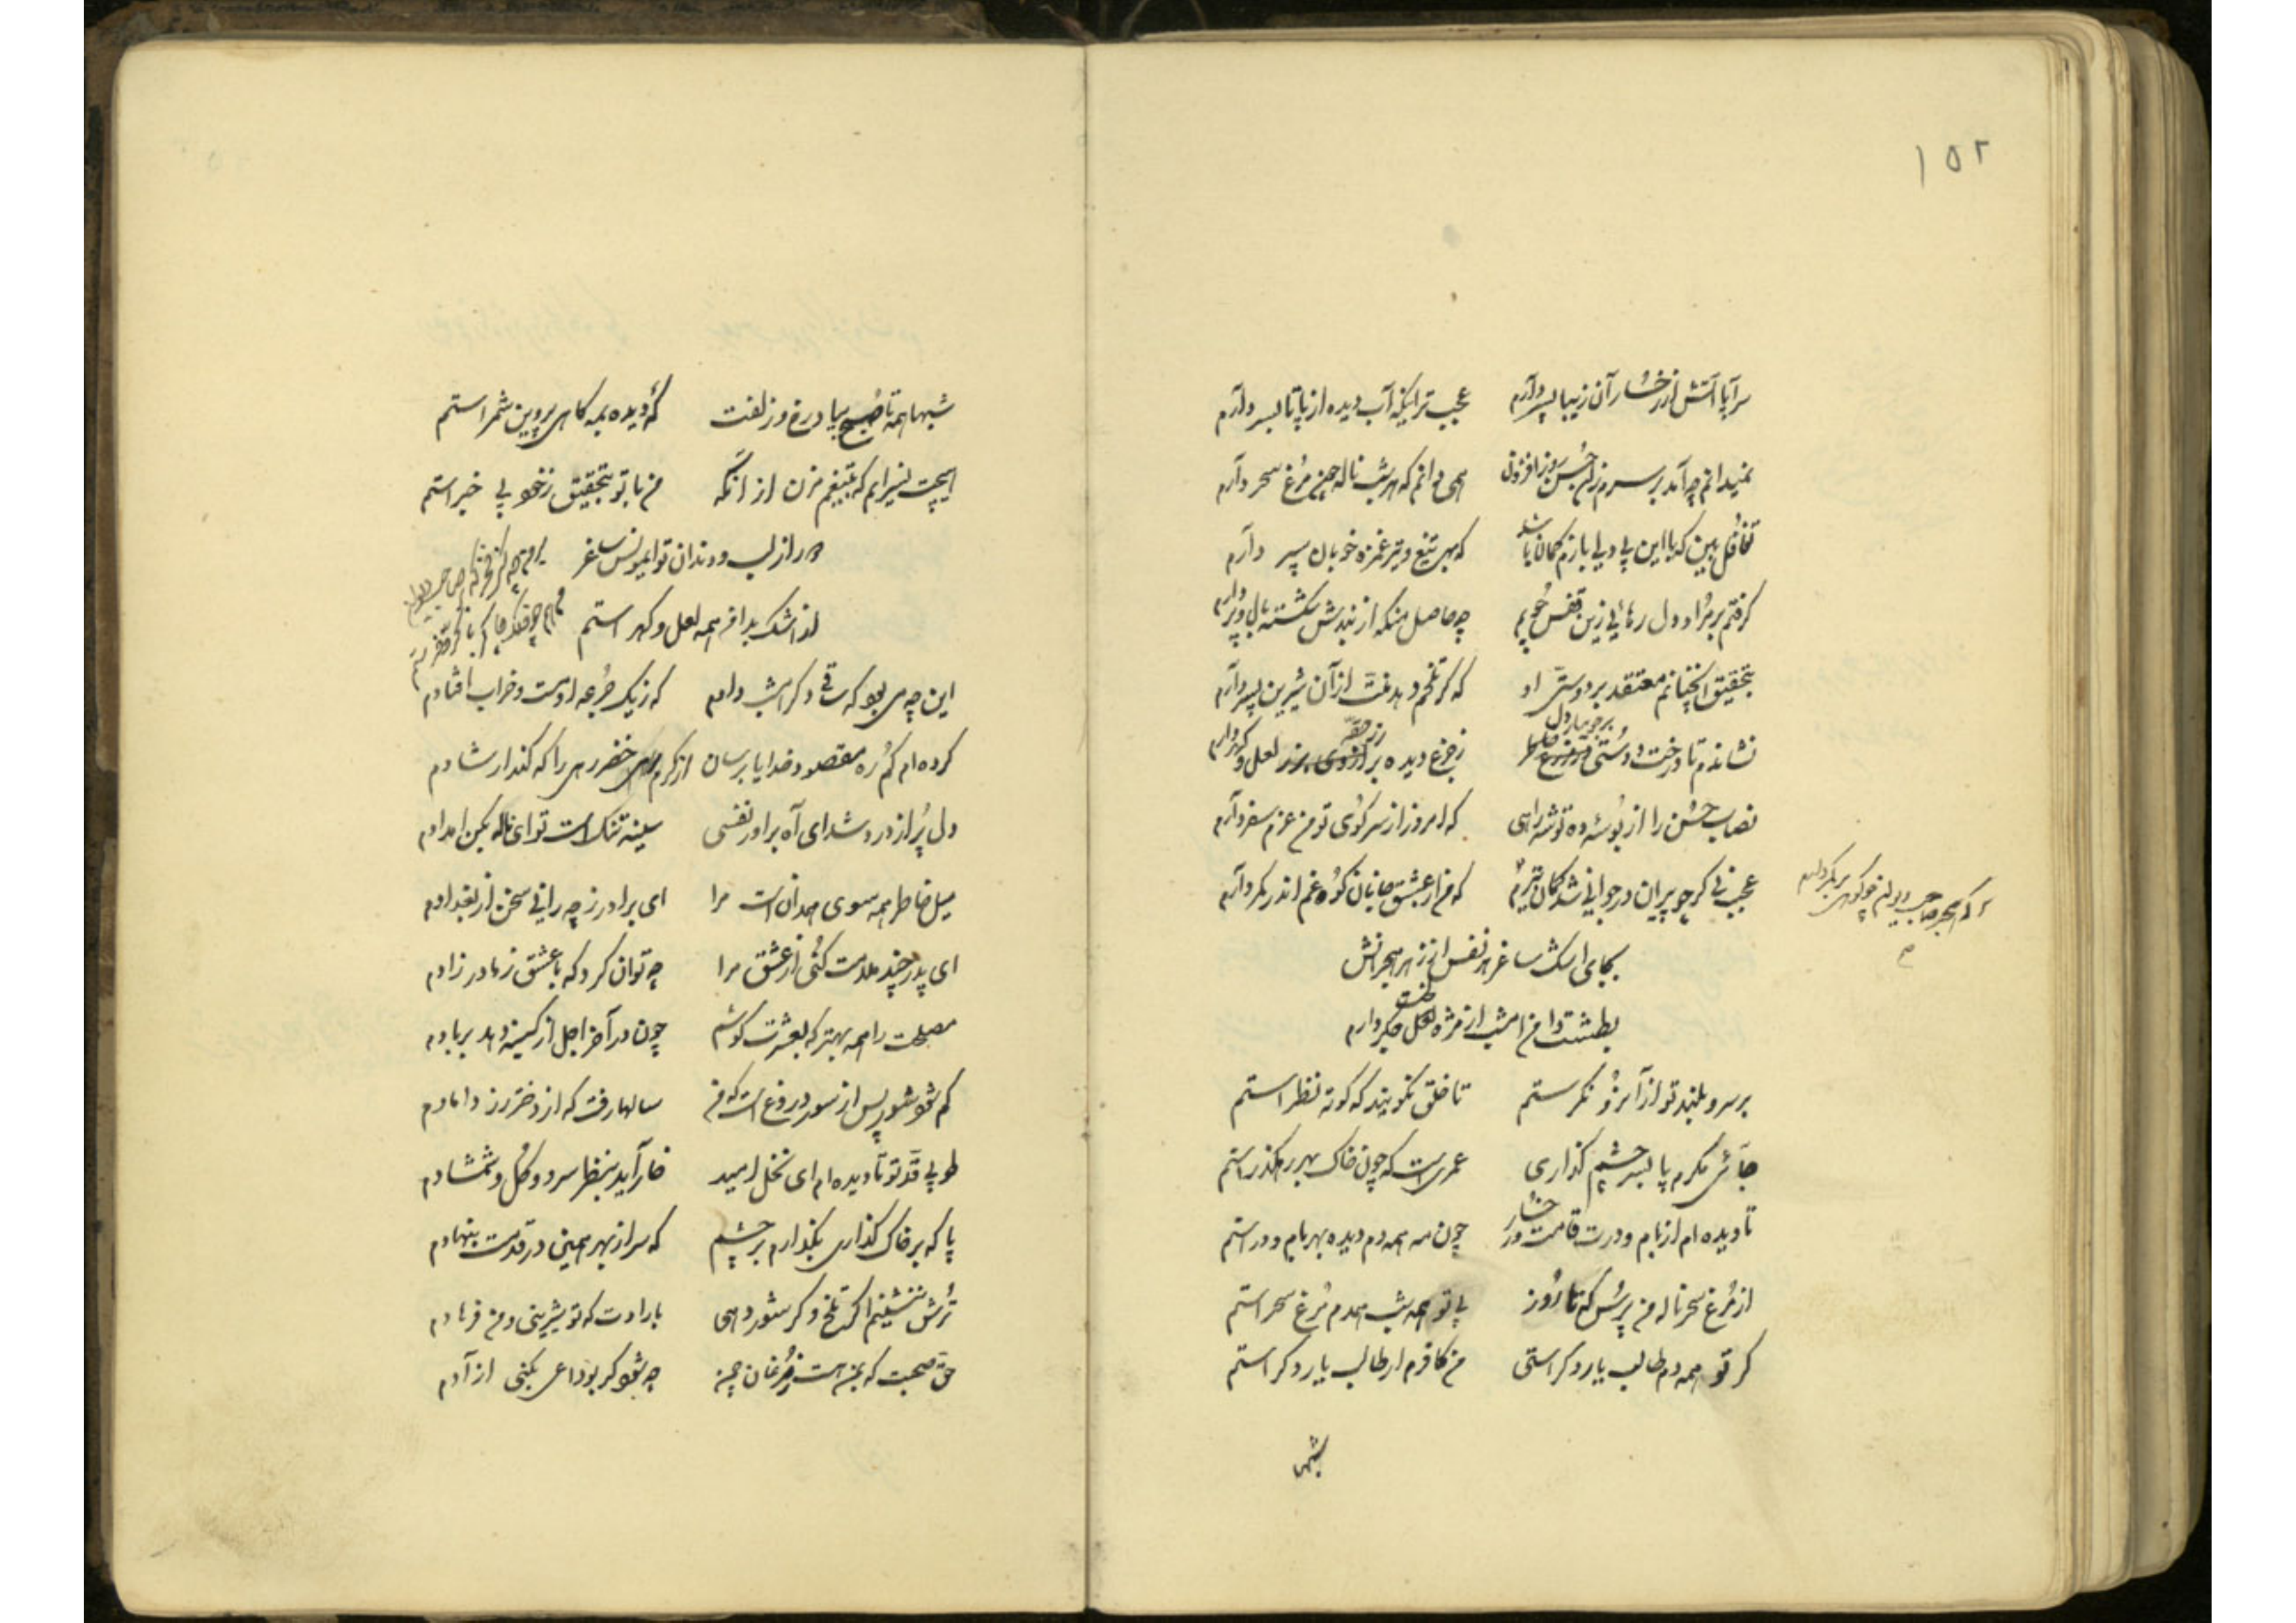 ۱۵۲
سراپا آتش از رخسار آن زیبا پسر دارم عجب تر اینکه آب دیده از پا تا بسر دارم
نمیدانم چه آمد بر سرم زان حسن روز افزون همی دانم که هر شب ناله چون مرغ سحر دارم
تغافل بین که با این بی دلی بازم کمان باشد که بهر تیغ و تیر غمزه خوبان سپر دارم
گرفتم بر مراد دل رهائی زین قفس جویم چه حاصل منکه از بندش شکسته بال و پر دارم
بتحقیق آنچنانم معتقد بر دوستی او که گر تلخم دهد منت از آن شیرین پسر دارم
برجویبار دل
نشاندم تا درخت دوستی ز جزع دیده بر لعل و گهر دارم
نصاب حسن را از بوسه ده توشه راهی که امروز از سر کوی تو من عزم سفر دارم
عجب نی گر چو پیران در جوانی شد کمان تیرم که من از عشق جانان کوه غم اندر کمر دارم
بجای اشک ساغر هر نفس از زهر هجرانش
بطشت دامن امشب از مژه لخت جگر دارم
بر سرو بلند تو از آنرو نگرستم تا خلق نگویند که کوته نظر استم
جائی مگرم پا بسر چشم گذاری عمریست که چون خاک بهر رهگذر استم
تا دیده ام از بام و درت قامت و رخسار چون مه همه دم دیده بهر بام و در استم
از مرغ سحر ناله من پرس که تا روز بی تو همه شب همدم مرغ سحر استم
گر تو همه دم طالب یار دگر استی من کافرم ار طالب یار دگر استم
شبها
شبها همه تا صبح بیاد رخ و زلفت که دیده بمه گاهی پروین شمر استم
هیچت نسرایم که بتیغم مزن از آنکه من با تو بتحقیق ز خود بی خبر استم
در راز لب و دندان تو ای مونس ساغر
از اشک بدامن همه لعل و گهر استم
این چه می بود که ساقی دگر امشب دادم که ز یک جرعه او مست و خراب افتادم
کرده ام گم ره مقصود خدایا برسان از کرم خضر رهی را که کند ارشادم
دل پر از درد شد ای آه برآور نفسی سینه تنگ است تو ای ناله بکن امدادم
میل خاطر همه سوی همدان است مرا ای برادر ز چه رانی سخن از بغدادم
ای پدر چند ملامت کنی از عشق مرا چه توان کرد که با عشق ز مادر زادم
مصلحت را همه بهتر که بعشرت کوشم چون در آخر اجل از کینه دهد بر بادم
کم شود شور پس از سور دروغ است که من سالها رفت که از دختر رز دامادم
طوبی قد تو تا دیده ام ای نخل امید خار آید بنظر سرو و گل و شمشادم
پا که بر خاک گذاری بگذارم بر چشم که سر از بهر همین در قدمت بنهادم
ترش ننشینم اگر تلخ و گر شور دهی با رادت که تو شیرینی و من فرهادم
حق صحبت که بمن هست ز مرغان چمن چه شود گر بوداعی بکنی آزادم